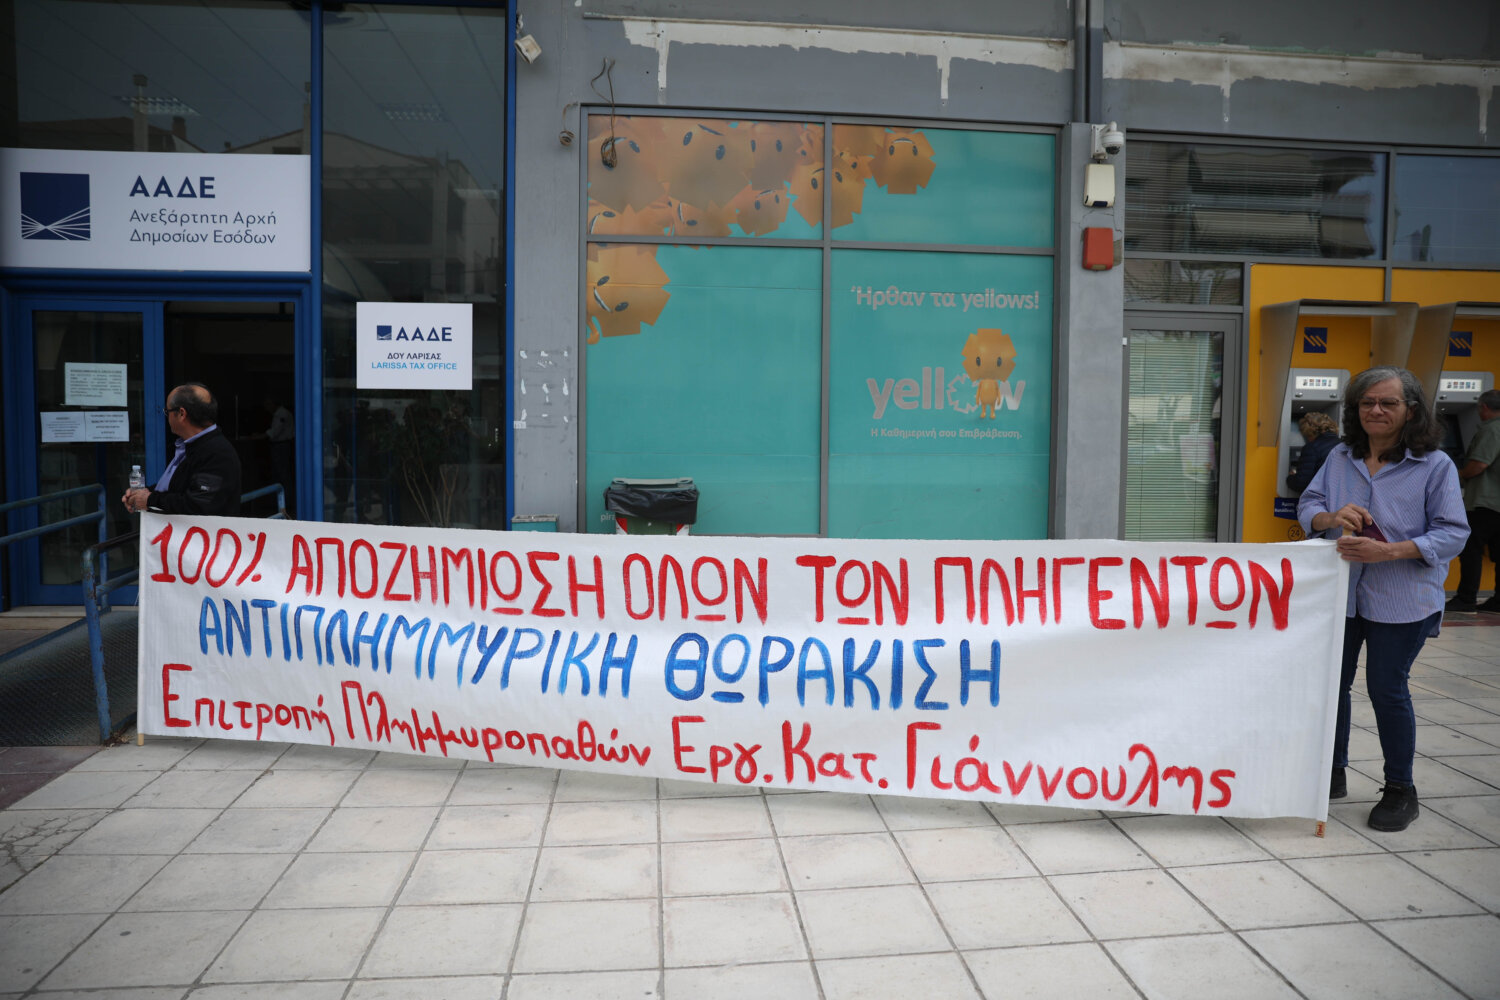 ΑΑΔΕ
Ανεξάρτητη Αρχή
Δημοσίων Εσόδων
ΑΑΔΕ
ΔΟΥ ΛΑΡΙΣΑΣ
LARISSA TAX OFFICE
Ήρθαν τα yellows!
yellow
Η Καθημερινή σου Επιβράβευση.
100% ΑΠΟΖΗΜΙΩΣΗ ΟΛΩΝ ΤΩΝ ΠΛΗΓΕΝΤΩΝ
ΑΝΤΙΠΛΗΜΜΥΡΙΚΗ ΘΩΡΑΚΙΣΗ
Επιτροπή Πλημμυροπαθών Εργ. Κατ. Γιάννουλης